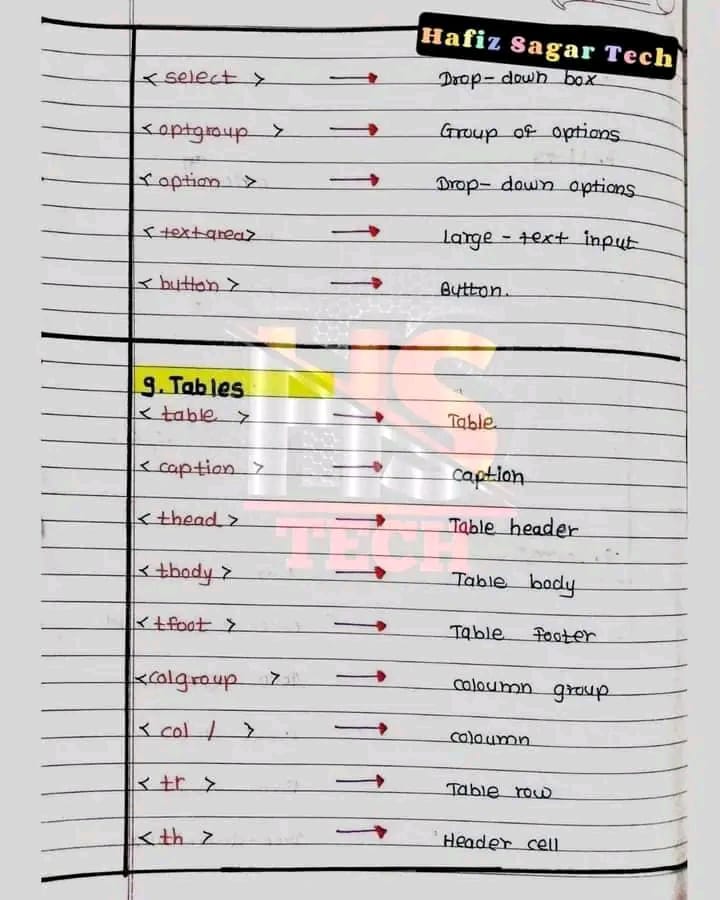 Hafiz Sagar Tech
< select > → Drop-down box
< optgroup > → Group of options
< option > → Drop-down options
< textarea> → Large-text input
< button > → Button.
9. Tables
< table > → Table
< caption > → caption
< thead > → Table header
< tbody > → Table body
< tfoot > → Table footer
<colgroup > → coloumn group
< col / > → coloumn
< tr > → Table row
< th > → Header cell
HS
TECH